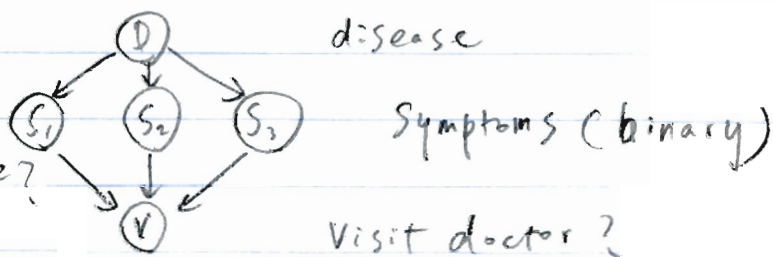 D disease
S1 S2 S3 Symptoms (binary)
e?
V Visit doctor?